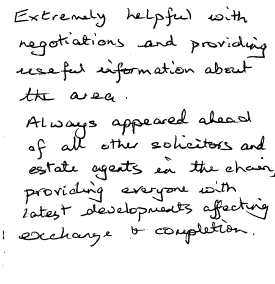 Extremely helpful with
negotiations and providing
useful information about
the area.
Always appeared ahead
of all other solicitors and
estate agents in the chain,
providing everyone with
latest developments affecting
exchange & completion.